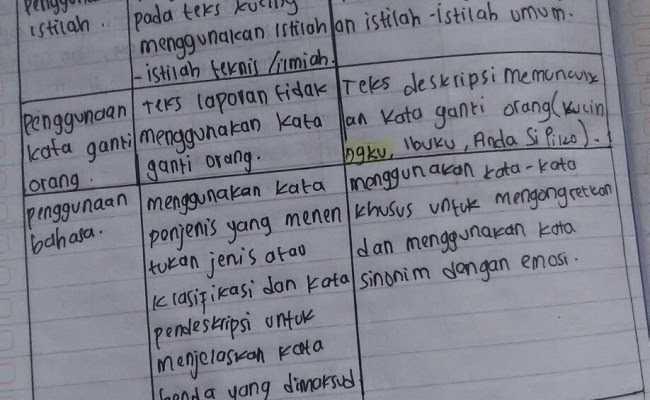 istilah.
pada teks kucing
menggunakan istilah
-istilah teknis/ilmiah.
an istilah-istilah umum.
penggunaan
kata ganti
orang.
teks laporan tidak
menggunakan kata
ganti orang.
Teks deskripsi memuncunk
an kata ganti orang(kucin
ngku, Ibuku, Anda Si Pizzo).
penggunaan
bahasa.
menggunakan kata
penjenis yang menen
tukan jenis atao
klasifikasi dan kata
pendeskripsi untuk
menjelaskan kata
benda yang dimaksud
menggunakan kata-kata
khusus untuk mengongretkan
dan menggunakan kata
sinonim dengan emosi.